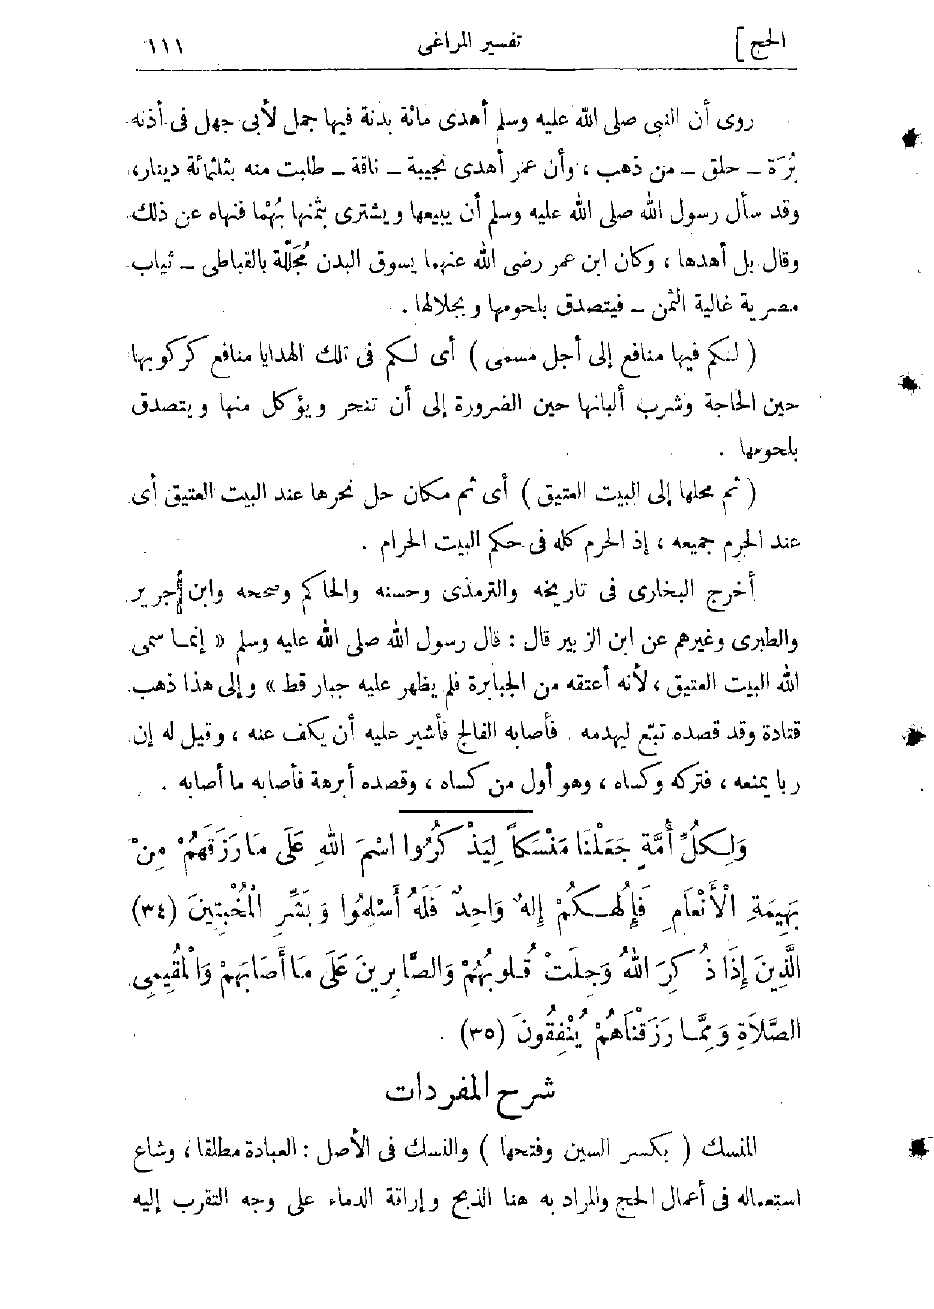 الحج] تفسير المراغى ١١١
روى أن النبى صلى الله عليه وسلم أهدى مائة بدنة فيها جمل لأبى جهل فى أذنه
بُرَة – حلق – من ذهب ، وأن عمر أهدى نجيبة – ناقة – طلبت منه بثلثمائة دينار،
وقد سأل رسول الله صلى الله عليه وسلم أن يبيعها ويشترى بثمنها بُهْما فنهاه عن ذلك
وقال بل أهدها ، وكان ابن عمر رضى الله عنهما يسوق البدن مُجَلّلة بالقباطى – ثياب
مصرية غالية الثمن – فيتصدق بلحومها وبجلالها .
( لكم فيها منافع إلى أجل مسمى ) أى لكم فى تلك الهدايا منافع كركوبها
حين الحاجة وشرب ألبانها حين الضرورة إلى أن تنحر ويؤكل منها ويتصدق
بلحومها .
( ثم محلها إلى البيت العتيق ) أى ثم مكان حل نحرها عند البيت العتيق أى
عند الحرم جميعه ، إذ الحرم كله فى حكم البيت الحرام .
أخرج البخارى فى تاريخه والترمذى وحسنه والحاكم وصححه وابن جرير
والطبرى وغيرهم عن ابن الزبير قال : قال رسول الله صلى الله عليه وسلم « إنما سمى
الله البيت العتيق ، لأنه أعتقه من الجبابرة فلم يظهر عليه جبار قط » وإلى هذا ذهب
قتادة وقد قصده تبّع ليهدمه . فأصابه الفالج فأشير عليه أن يكف عنه ، وقيل له إن
ربا يمنعه ، فتركه وكساه ، وهو أول من كساه ، وقصده أبرهة فأصابه ما أصابه .
وَلِكُلِّ أُمَّةٍ جَعَلْنَا مَنْسَكاً لِيَذْكُرُوا اسْمَ اللهِ عَلَى مَا رَزَقَهُمْ مِنْ
بَهِيمَةِ الْأَنْعَامِ فَإِلٰهُكُمْ إِلهٌ وَاحِدٌ فَلَهُ أَسْلِمُوا وَبَشِّرِ الْمُخْبِتِينَ (٣٤)
الَّذِينَ إِذَا ذُكِرَ اللهُ وَجِلَتْ قُلوبُهُمْ وَالصَّابِرِينَ عَلَى مَا أَصَابَهُمْ وَالْمُقِيمِى
الصَّلاَةِ وَمِمَّا رَزَقْنَاهُمْ يُنْفِقُونَ (٣٥) .
شرح المفردات
المنسك ( بكسر السين وفتحها ) والنسك فى الأصل : العبادة مطلقا ، وشاع
استعماله فى أعمال الحج والمراد به هنا الذبح وإراقة الدماء على وجه التقرب إليه